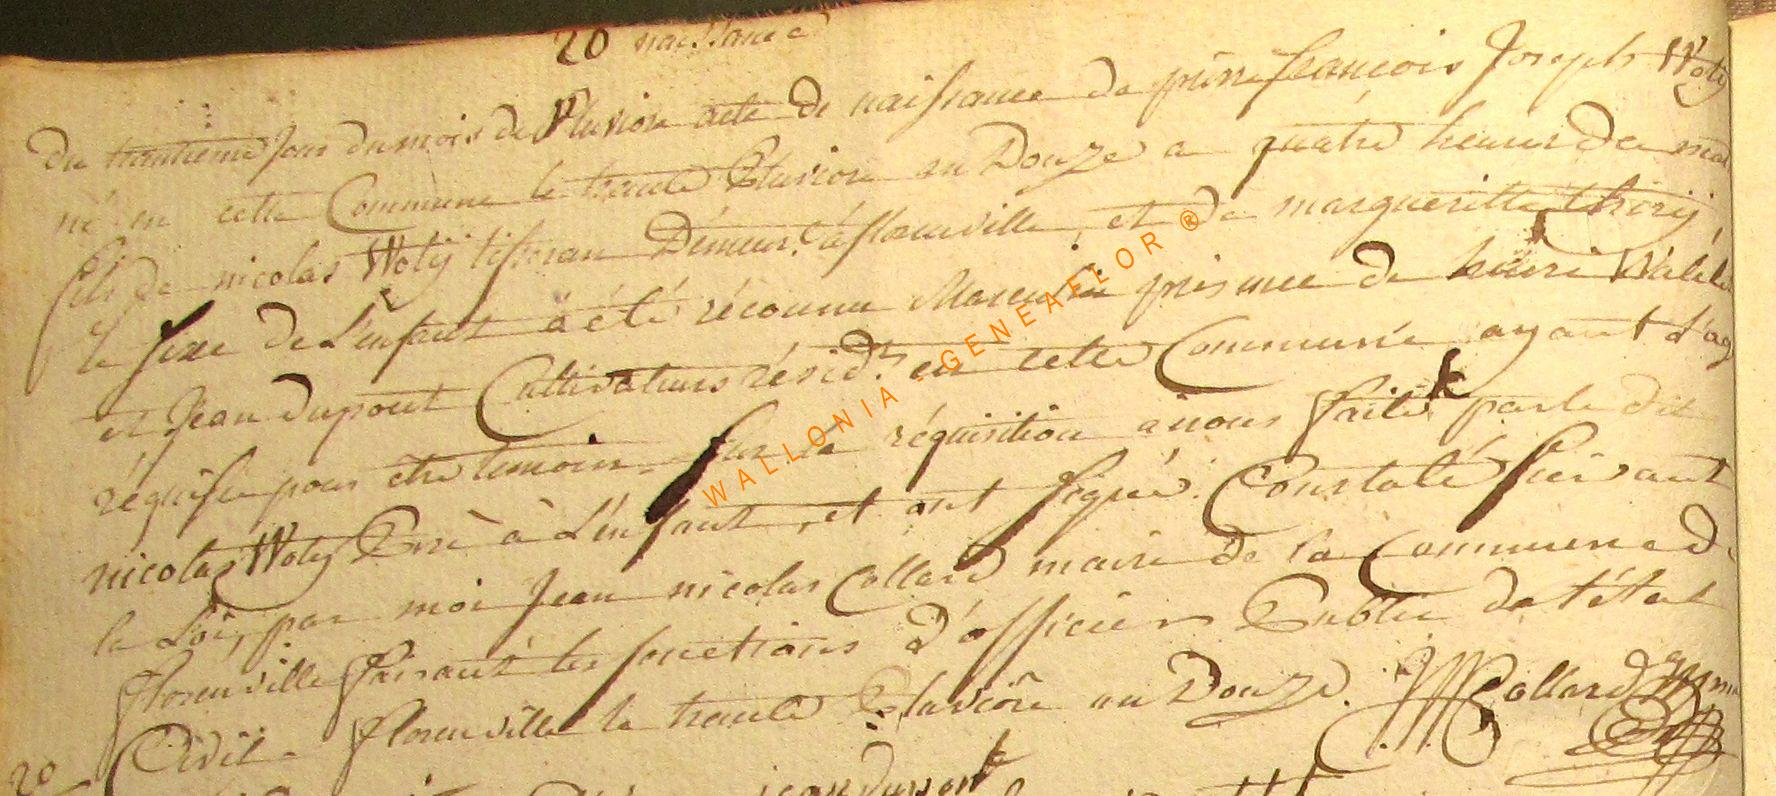 20 naissance
Du trantieme Jour du mois de Pluviose acte de naissance de pierre françois Joseph Woty
né en cette Commune le trante Pluviose an Douze a quatre heures du mat
fils de nicolas Woty tisseran Démeur.t à florenville, et de margueritte thiry
le sexe de L'enfant a été réconnu Masculin présence de henri
et Jean dupont Cultivateurs résid.t en cette Commune ayant L'ag
réquise pour etre temoin. Sur la réquisition a nous faite par le dit
nicolas Woty Pere à L'enfant, et ont signé. Constaté suivant
la Loi, par moi Jean nicolas Collard maire de la Commune de
florenville faisant les fonctions d'officier Public de l'état
Civil. florenville le trante Pluviose an Douze. JN Collard
20
jean dupont
WALLONIA - GENEAFLOR ®